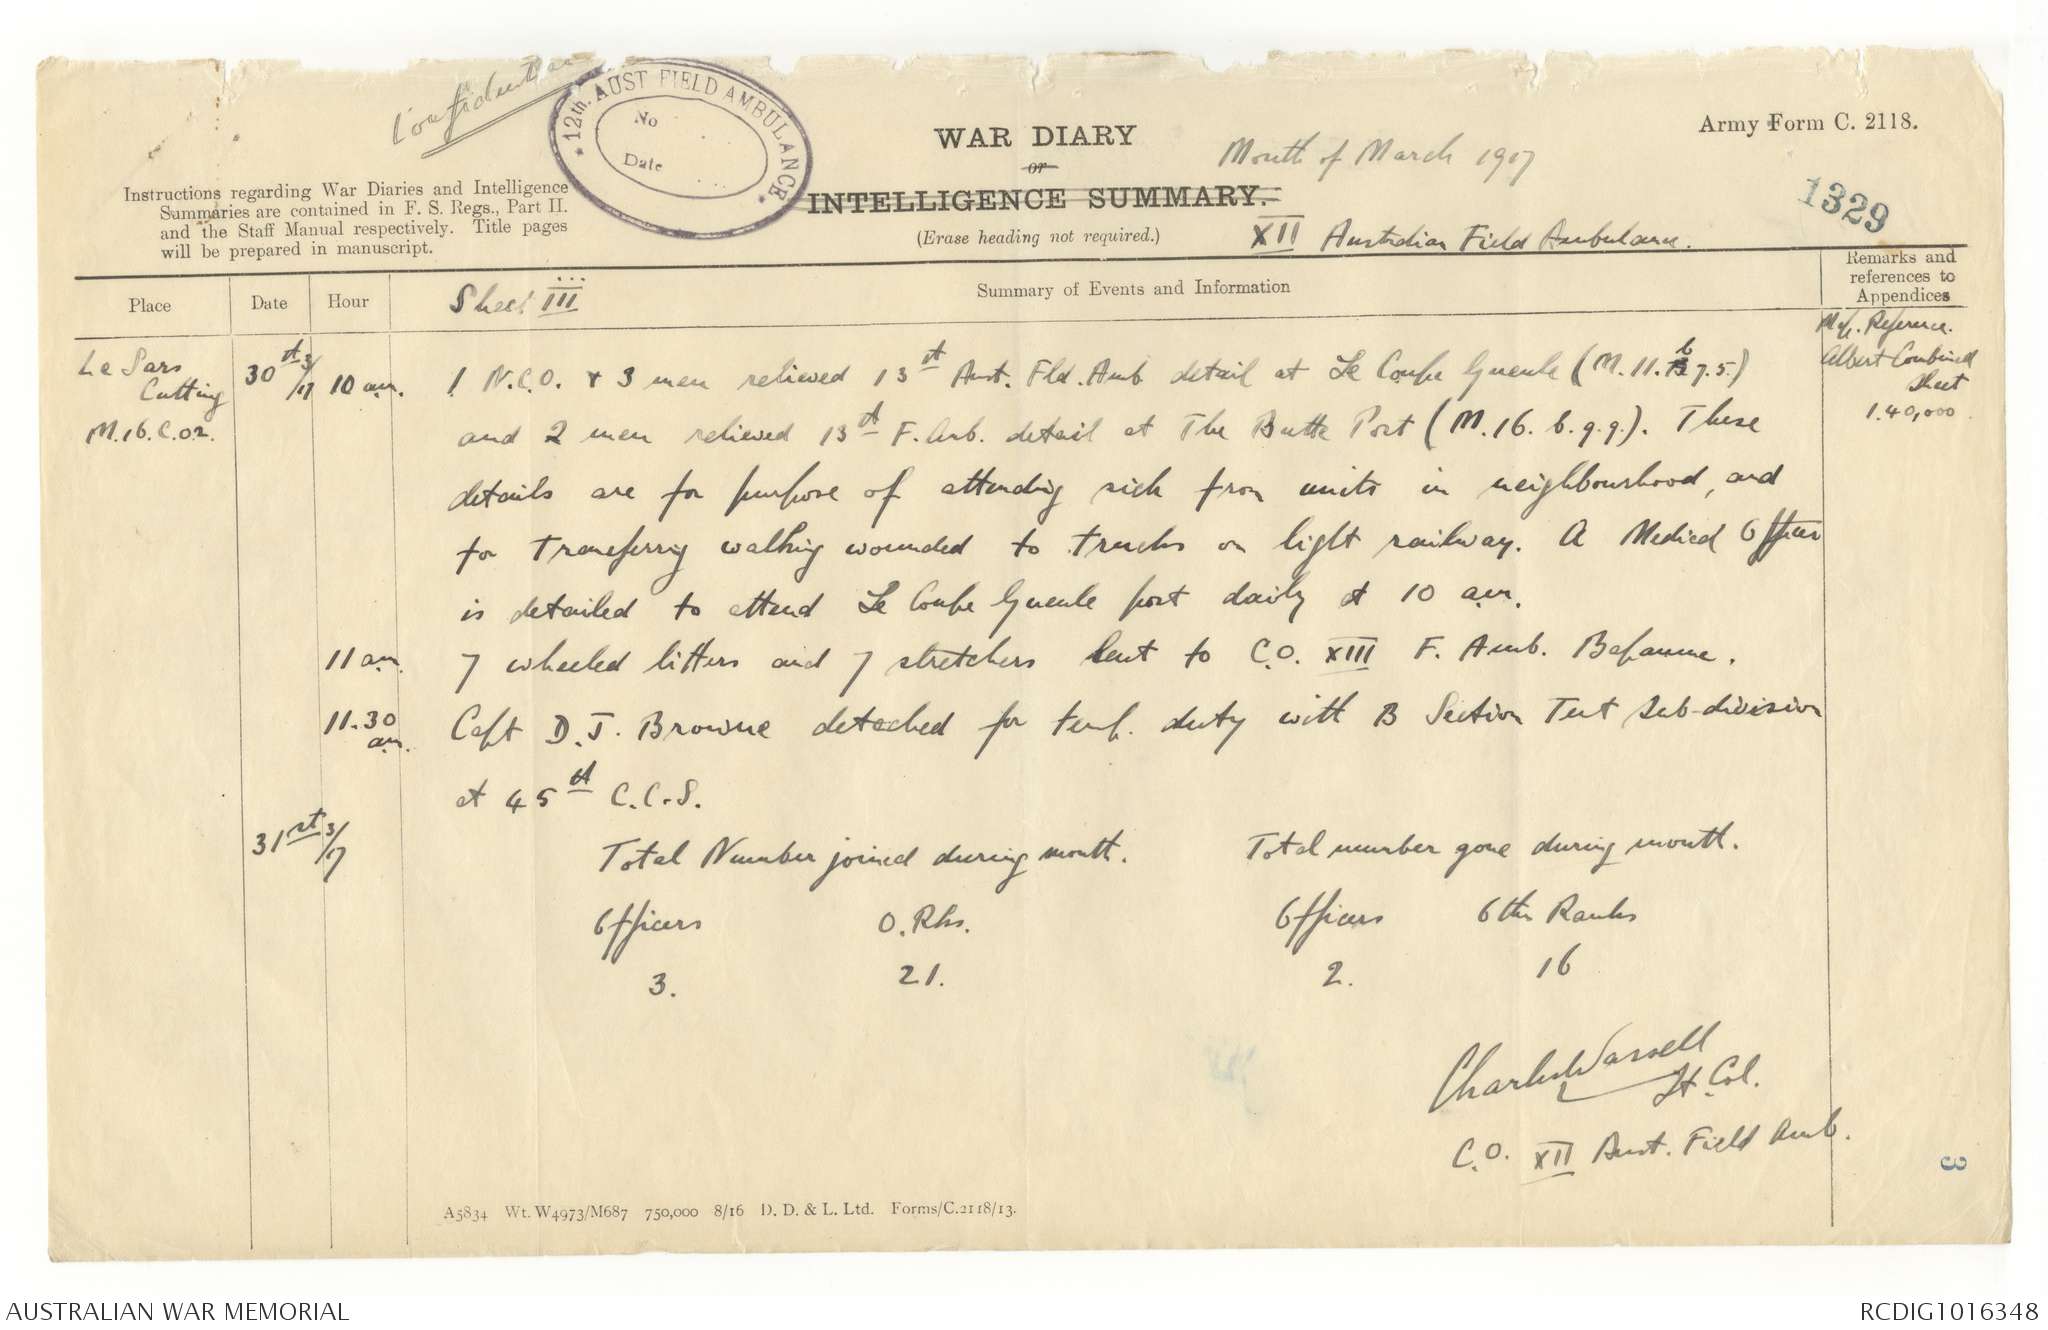 Confidential
12th. AUST FIELD AMBULANCE
No
Date
WAR DIARY
or
INTELLIGENCE SUMMARY.
(Erase heading not required.)
Month of March 1917
XII Australian Field Ambulance.
Army Form C. 2118.
1329
Instructions regarding War Diaries and Intelligence
Summaries are contained in F. S. Regs., Part II.
and the Staff Manual respectively. Title pages
will be prepared in manuscript.
Place
Date
Hour
Sheet III
Summary of Events and Information
Remarks and
references to
Appendices
Map. Reference.
Albert Combined
Sheet
1.40,000
Le Sars
Cutting
M.16.C.02.
30th 3/17 10 am. 1 N.C.O. & 3 men relieved 13th Aust. Fld. Amb detail at Le Coupe Gueule (M.11.b 7.5.)
and 2 men relieved 13th F. Amb. detail at The Butte Post (M.16. b. 9.9.). These
details are for purpose of attending sick from units in neighbourhood, and
for transferring walking wounded to trucks on light railway. A Medical Officer
is detailed to attend Le Coupe Gueule post daily at 10 am.
11 am. 7 wheeled litters and 7 stretchers sent to C.O. XIII F. Amb. Bapaume.
11.30 am. Capt D. J. Browne detached for temp. duty with B Section Tent Sub-division
at 45th C.C.S.
31st 3/17
Total Number joined during month. Total number gone during month.
Officers O. Rks. Officers Other Ranks
3. 21. 2. 16
Charles Wassell
Lt. Col.
C.O. XII Aust. Field Amb.
3
A5834 Wt. W4973/M687 750,000 8/16 D. D. & L. Ltd. Forms/C.2118/13.
AUSTRALIAN WAR MEMORIAL
RCDIG1016348